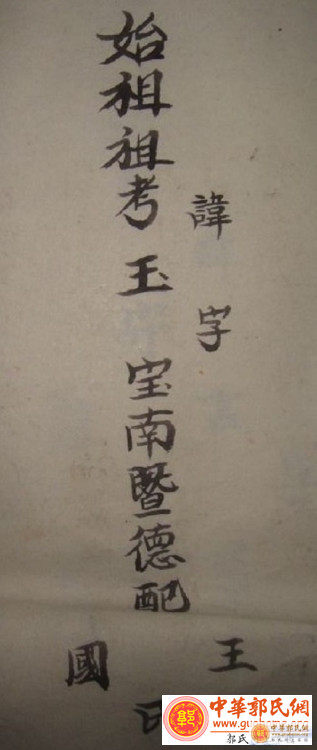 諱 字 王
始祖祖考 玉 宝南暨德配
國
中華郭氏網
郭氏